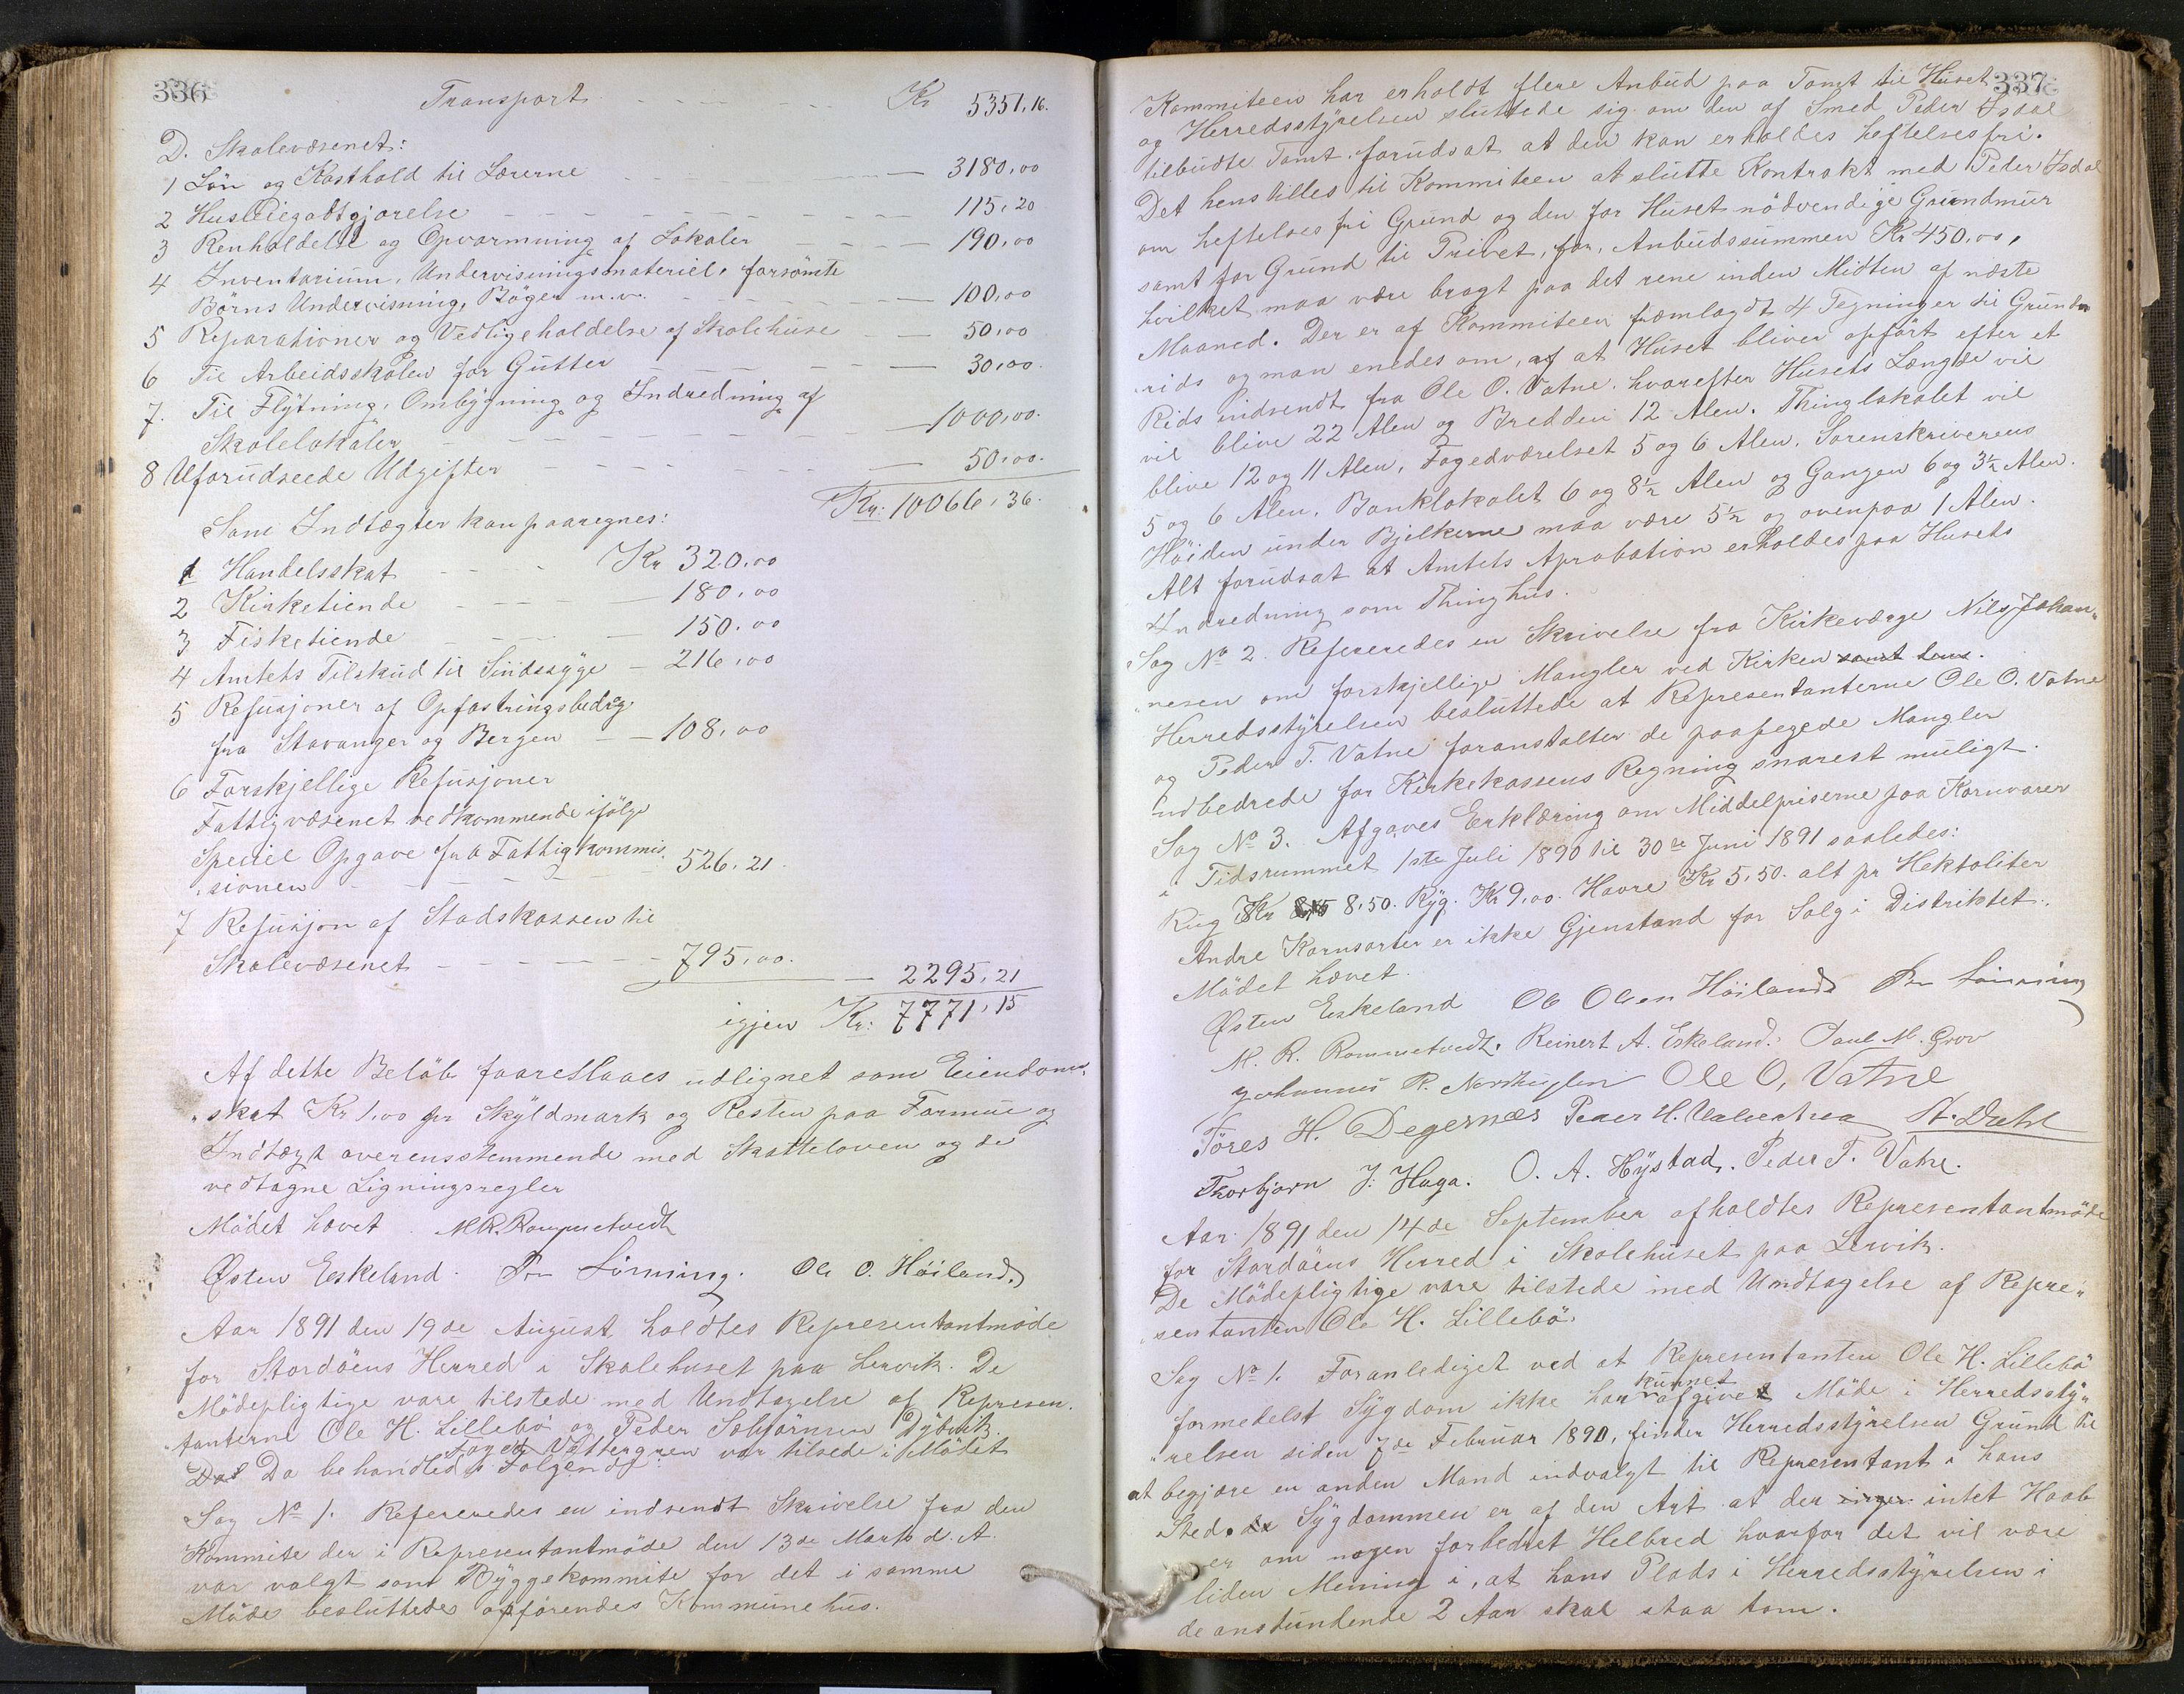 336
Transport Kr 5351,16.
D. Skolevæsenet:
1 Løn og Kosthold til Lærerne 3180,00
2 Husleiegodtgjørelse 115,20
3 Renholdelse og Opvarmning af Lokaler 190,00
4 Inventarium, Undervisningsmateriel, forsømte
Børns Undervisning, Bøger m.v. 100,00
5 Reparationer og Vedligeholdelse af Skolehuse 50,00
6 Til Arbeidsskolen for Gutter 30,00.
7. Til Flytning, Ombygning og Indredning af
Skolelokaler 1000,00.
8 Uforudseede Udgifter 50,00.
Kr: 10066,36.
Som Indtægter kan paaregnes:
1 Handelsskat Kr 320,00
2 Kirketiende 180,00
3 Fisketiende 150,00
4 Amtets Tilskud til Sindssyge 216,00
5 Refusjoner af Opfostringsbedrg
fra Stavanger og Bergen 108,00
6 Forskjellige Refusjoner
Fattigvæsenet vedkommende ifølge
Speciel Opgave fra Fattigkommis
sionen 526,21.
7 Refusjon af Stadskassen til
Skolevæsenet 795,00.
2295,21
igjen Kr: 7771,15
Af dette Beløb foareslaaes udlignet som Eiendoms„
„skat Kr 1,00 pr Skyldmark og Resten paa Formue og
Indtægt overensstemmende med Skatteloven og de
vedtagne Ligningsregler
Mødet hævet. M.R. Rommetvedt
Østen Eskeland. Ole O. Høiland,
Aar 1891 den 19de August holdtes Representantmøde
for Stordøens Herred i Skolehuset paa Lervik. De
Mødepligtige vare tilstede med Undtagelse af Represen„
tanterne Ole H. Lillebø og Peder Solbjørnsen Dybvik.
Foged Vettergren var tilsede i Mødet
Da behandledes Følgende
Sag No 1. Refereredes en indsendt Skrivelse fra den
Kommite der i Representantmøde den 13de Marts d. A.
var valgt som Byggekommite for det i samme
Møde besluttedes opførendes Kommunehus.
337
Kommiteen har erholdt flere Anbud paa Tomt til Huset
og Herredsstyrelsen sluttede sig om den af Smed Peder Isdal
tilbudte Tomt forudsat at den kan erholdes heftelsesfri.
Det henstilles til Kommiteen at slutte Kontrakt med Peder Isdal
om heftelses fri Grund og den for Huset nødvendige Grundmur
samt for Grund til Privet, for Anbudssummen Kr 450,00,
hvilket maa være bragt paa det rene inden Midten af næste
Maaned. Der er af Kommiteen fræmlagdt 4 Tegninger til Grund„
„rids og man enedes om, af at Huset bliver opført efter et
Rids indsendt fra Ole O. Vatne. hvorefter Husets Længde vil
vil blive 22 Alen og Bredden 12 Alen. Thinglokalet vil
blive 12 og 11 Alen, Fogedværelset 5 og 6 Alen. Sorenskriverens
5 og 6 Alen, Banklokalet 6 og 8½ Alen og Gangen 6 og 3½ Alen.
Høiden under Bjelkerne maa være 5½ og ovenpaa 1 Alen.
Alt forudsat at Amtets Aprobation erholdes paa Husets
Indredning som Thinghus.
Sag No 2. Refereredes en Skrivelse fra Kirkeværge Nils Johan„
„nesen om forskjellige Mangler ved Kirken samt dens.
Herredsstyrelsen besluttede at Representanterne Ole O. Vatne
og Peder T. Vatne foranstalter de paapegede Mangler
udbedrede for Kirkekassens Regning snarest muligt.
Sag No 3. Afgaves Erklæring om Middelpriserne paa Kornvarer
i Tidsrummet 1ste Juli 1890 til 30te Juni 1891 saaledes:
Rug Kr 8,50. Byg. Kr 9,00. Havre Kr 5,50. alt pr Hektoliter
Andre Kornsorter er ikke Gjenstand for Salg i Distriktet.
Mødet hævet.
Østen Eskeland Ole Olsen Høiland
M. R. Rommetvedt. Reinert A. Eskeland. Paul M. Grov
Johannes R. Nordhuglen Ole O, Vatne
Tøres H. Degernæs Peder H. Valvatnea H. Dahl
Thorbjørn J. Haga. O. A. Hystad. Peder T. Vatne.
Aar 1891 den 14de September afholdtes Representantmøde
for Stordøens Herred i Skolehuset paa Lervik.
De Mødepligtige vare tilstede med Undtagelse af Repre„
sentanten Ole H. Lillebø.
Sag No 1. Foranlediget ved at Representanten Ole H. Lillebø
formedelst Sygdom ikke har kunnet afgivet Møde i Herredssty„
„relsen siden 7de Februar 1890, finder Herredsstyrelsen Grund til
at begjære en anden Mand indvalgt til Representant i hans
Sted. da Sygdommen er af den Art at der ingen intet Haab
er om nogen forbedret Helbred hvorfor det vil være
liden Mening i, at hans Plads i Herredsstyrelsen i
de anstundende 2 Aar skal staa tom.